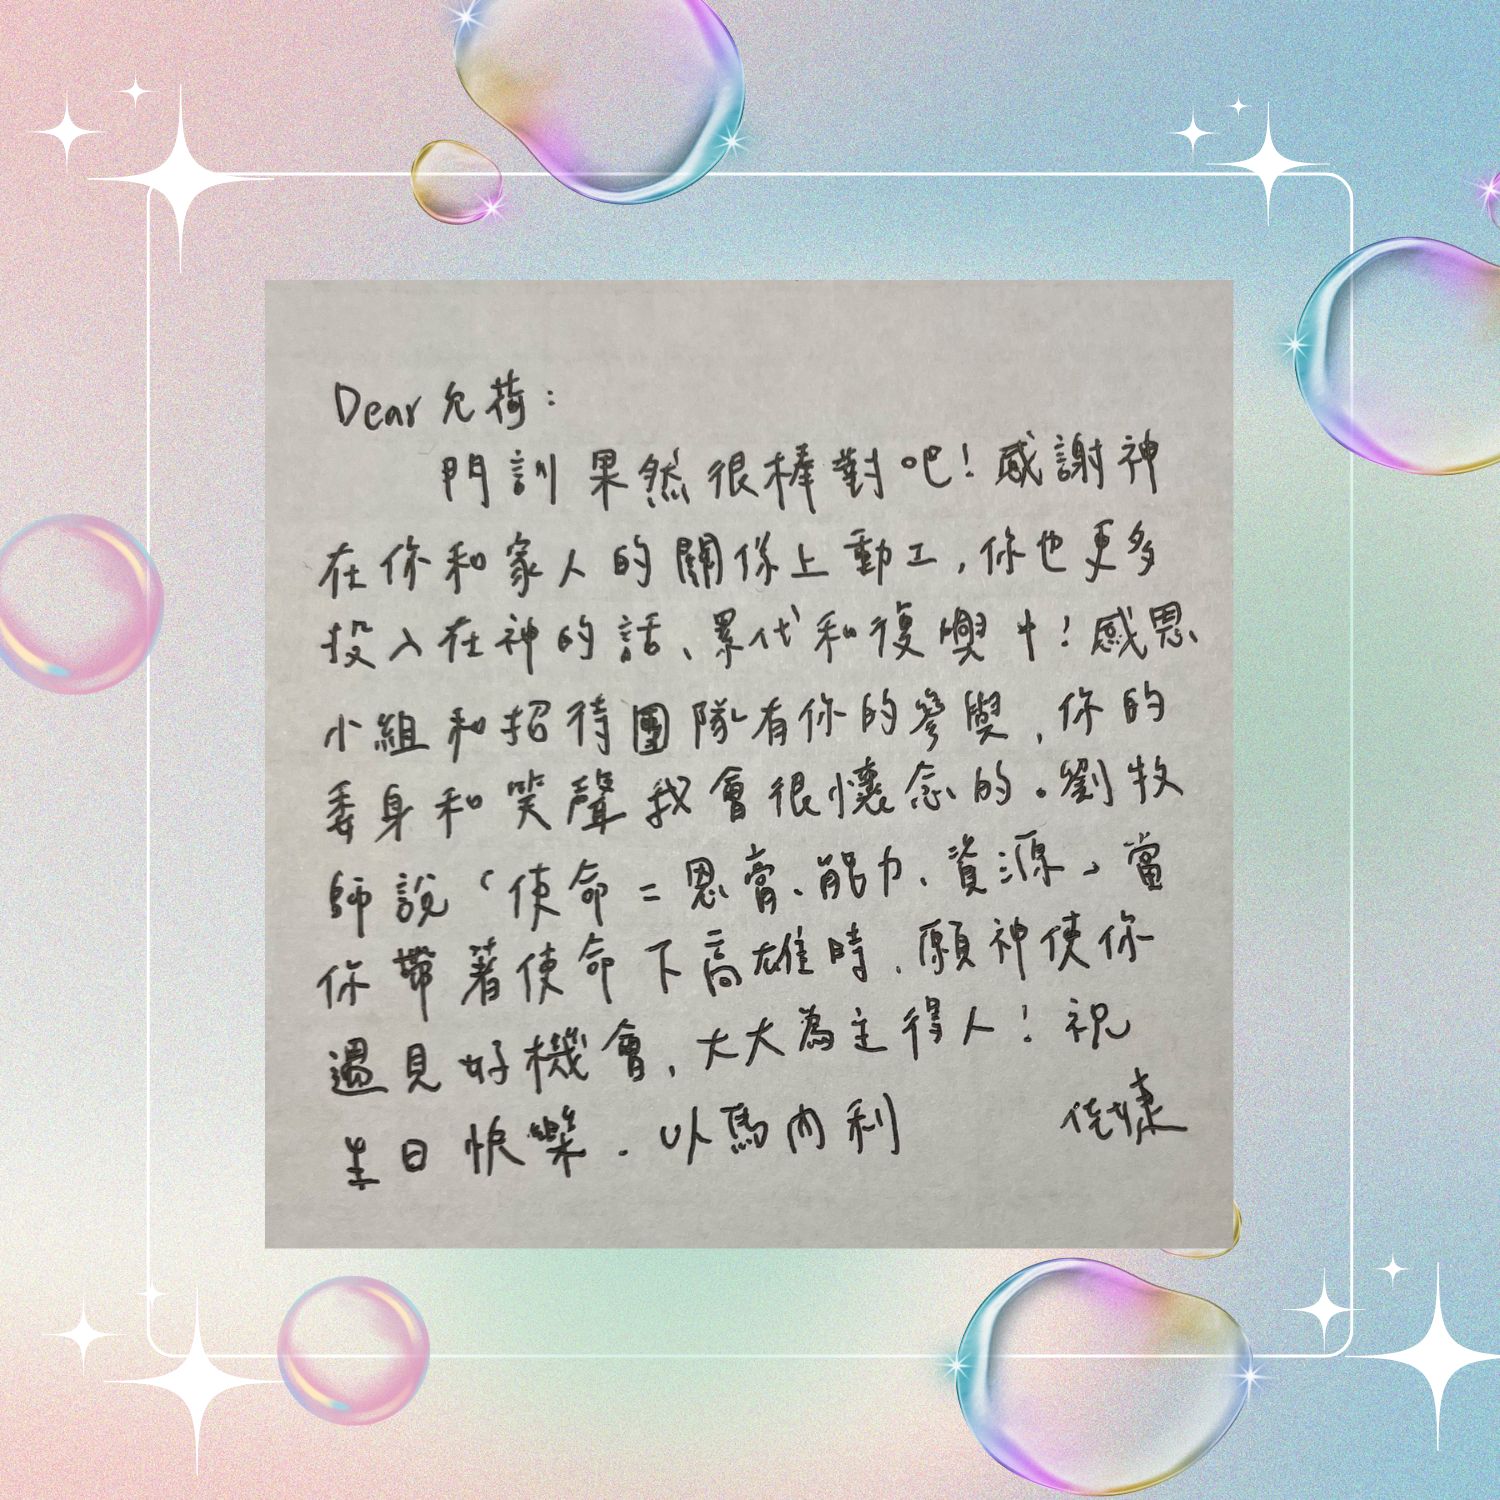 Dear 允荷：
門訓果然很棒對吧！感謝神
在你和家人的關係上動工，你也更多
投入在神的話、累代和復興中！感恩
小組和招待團隊有你的參與，你的
委身和笑聲我會很懷念的。劉牧
師說「使命=恩膏、能力、資源」當
你帶著使命下高雄時，願神使你
遇見好機會，大大為主得人！祝
生日快樂. 以馬內利